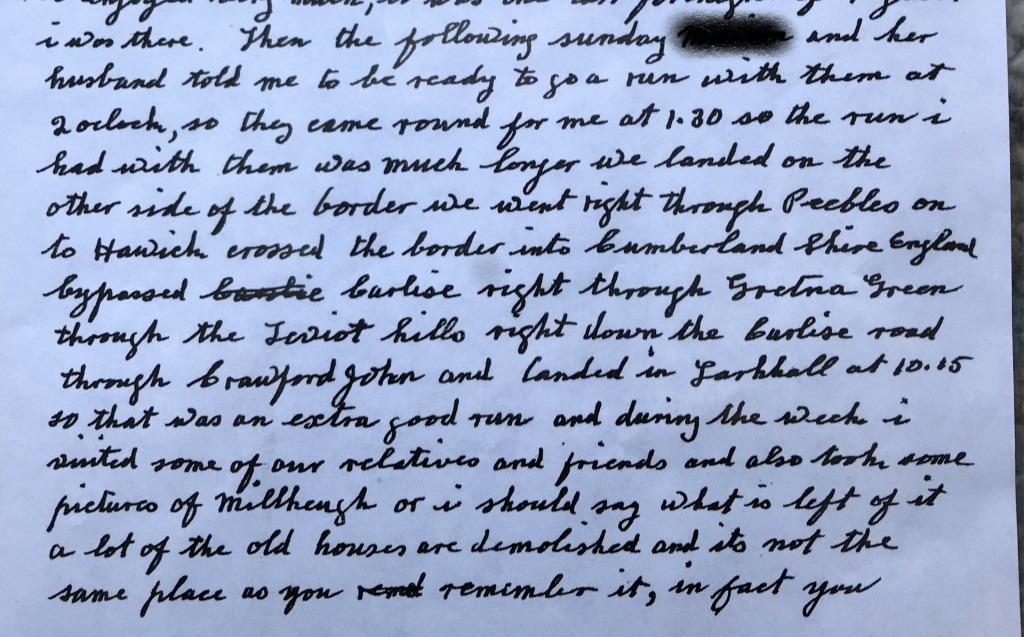 enjoyed very much, it was the last fortnight of
i was there. Then the following sunday and her
husband told me to be ready to go a run with them at
2 oclock, so they came round for me at 1.30 so the run i
had with them was much longer we landed on the
other side of the border we went right through Peebles on
to Hawick crossed the border into Cumberland Shire England
bypassed Carlise right through Gretna Green
through the Teviot hills right down the Carlise road
through Crawford John and landed in Larkhall at 10.15
so that was an extra good run and during the week i
visited some of our relatives and friends and also took some
pictures of Millheugh or i should say what is left of it
a lot of the old houses are demolished and its not the
same place as you remember it, in fact you